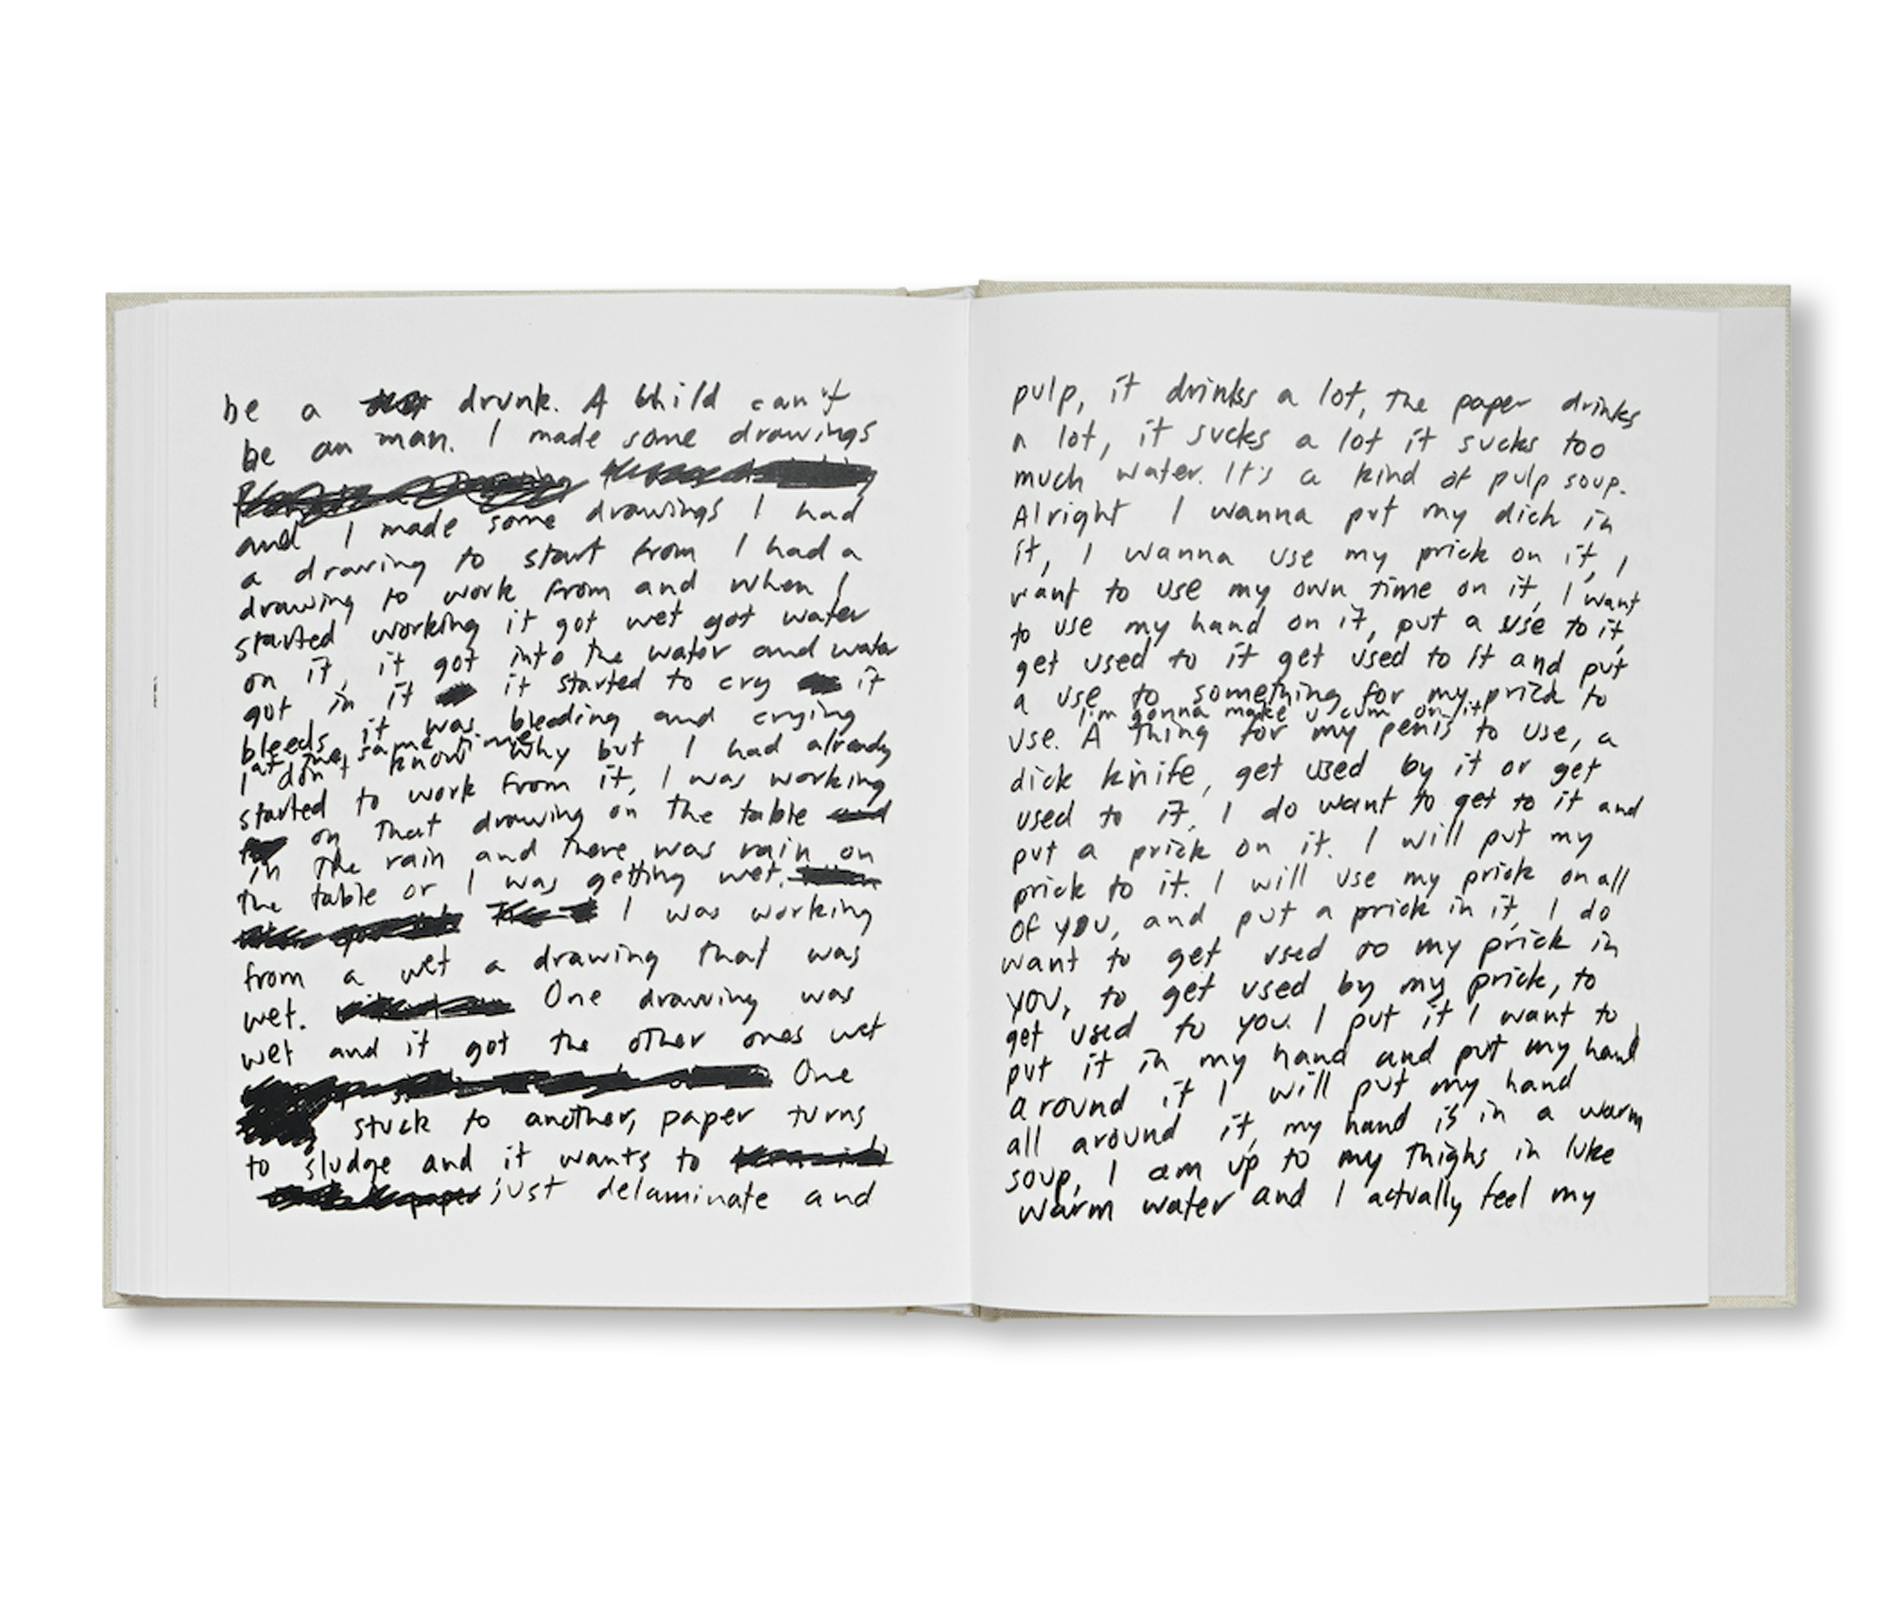 be a drunk. A child can't
be an man. I made some drawings
and I made some drawings I had
a drawing to start from I had a
drawing to work from and when I
started working it got wet got water
on it, it got into the water and water
got in it it started to cry it
bleeds it was bleeding and crying
at the same time
I don't know why but I had already
started to work from it, I was working
on that drawing on the table and
in the rain and there was rain on
the table or I was getting wet.
I was working
from a wet a drawing that was
wet. One drawing was
wet and it got the other ones wet
One
stuck to another, paper turns
to sludge and it wants to
just delaminate and
pulp, it drinks a lot, the paper drinks
a lot, it sucks a lot it sucks too
much water. It's a kind of pulp soup.
Alright I wanna put my dick in
it, I wanna use my prick on it, I
want to use my own time on it, I want
to use my hand on it, put a use to it,
get used to it get used to it and put
a use to something for my prick to
I'm gonna make u cum on it
use. A thing for my penis to use, a
dick knife, get used by it or get
used to it, I do want to get to it and
put a prick on it. I will put my
prick to it. I will use my prick on all
of you, and put a prick in it, I do
want to get used to my prick in
you, to get used by my prick, to
get used to you. I put it I want to
put it in my hand and put my hand
around it I will put my hand
all around it, my hand is in a warm
soup, I am up to my thighs in luke
warm water and I actually feel my